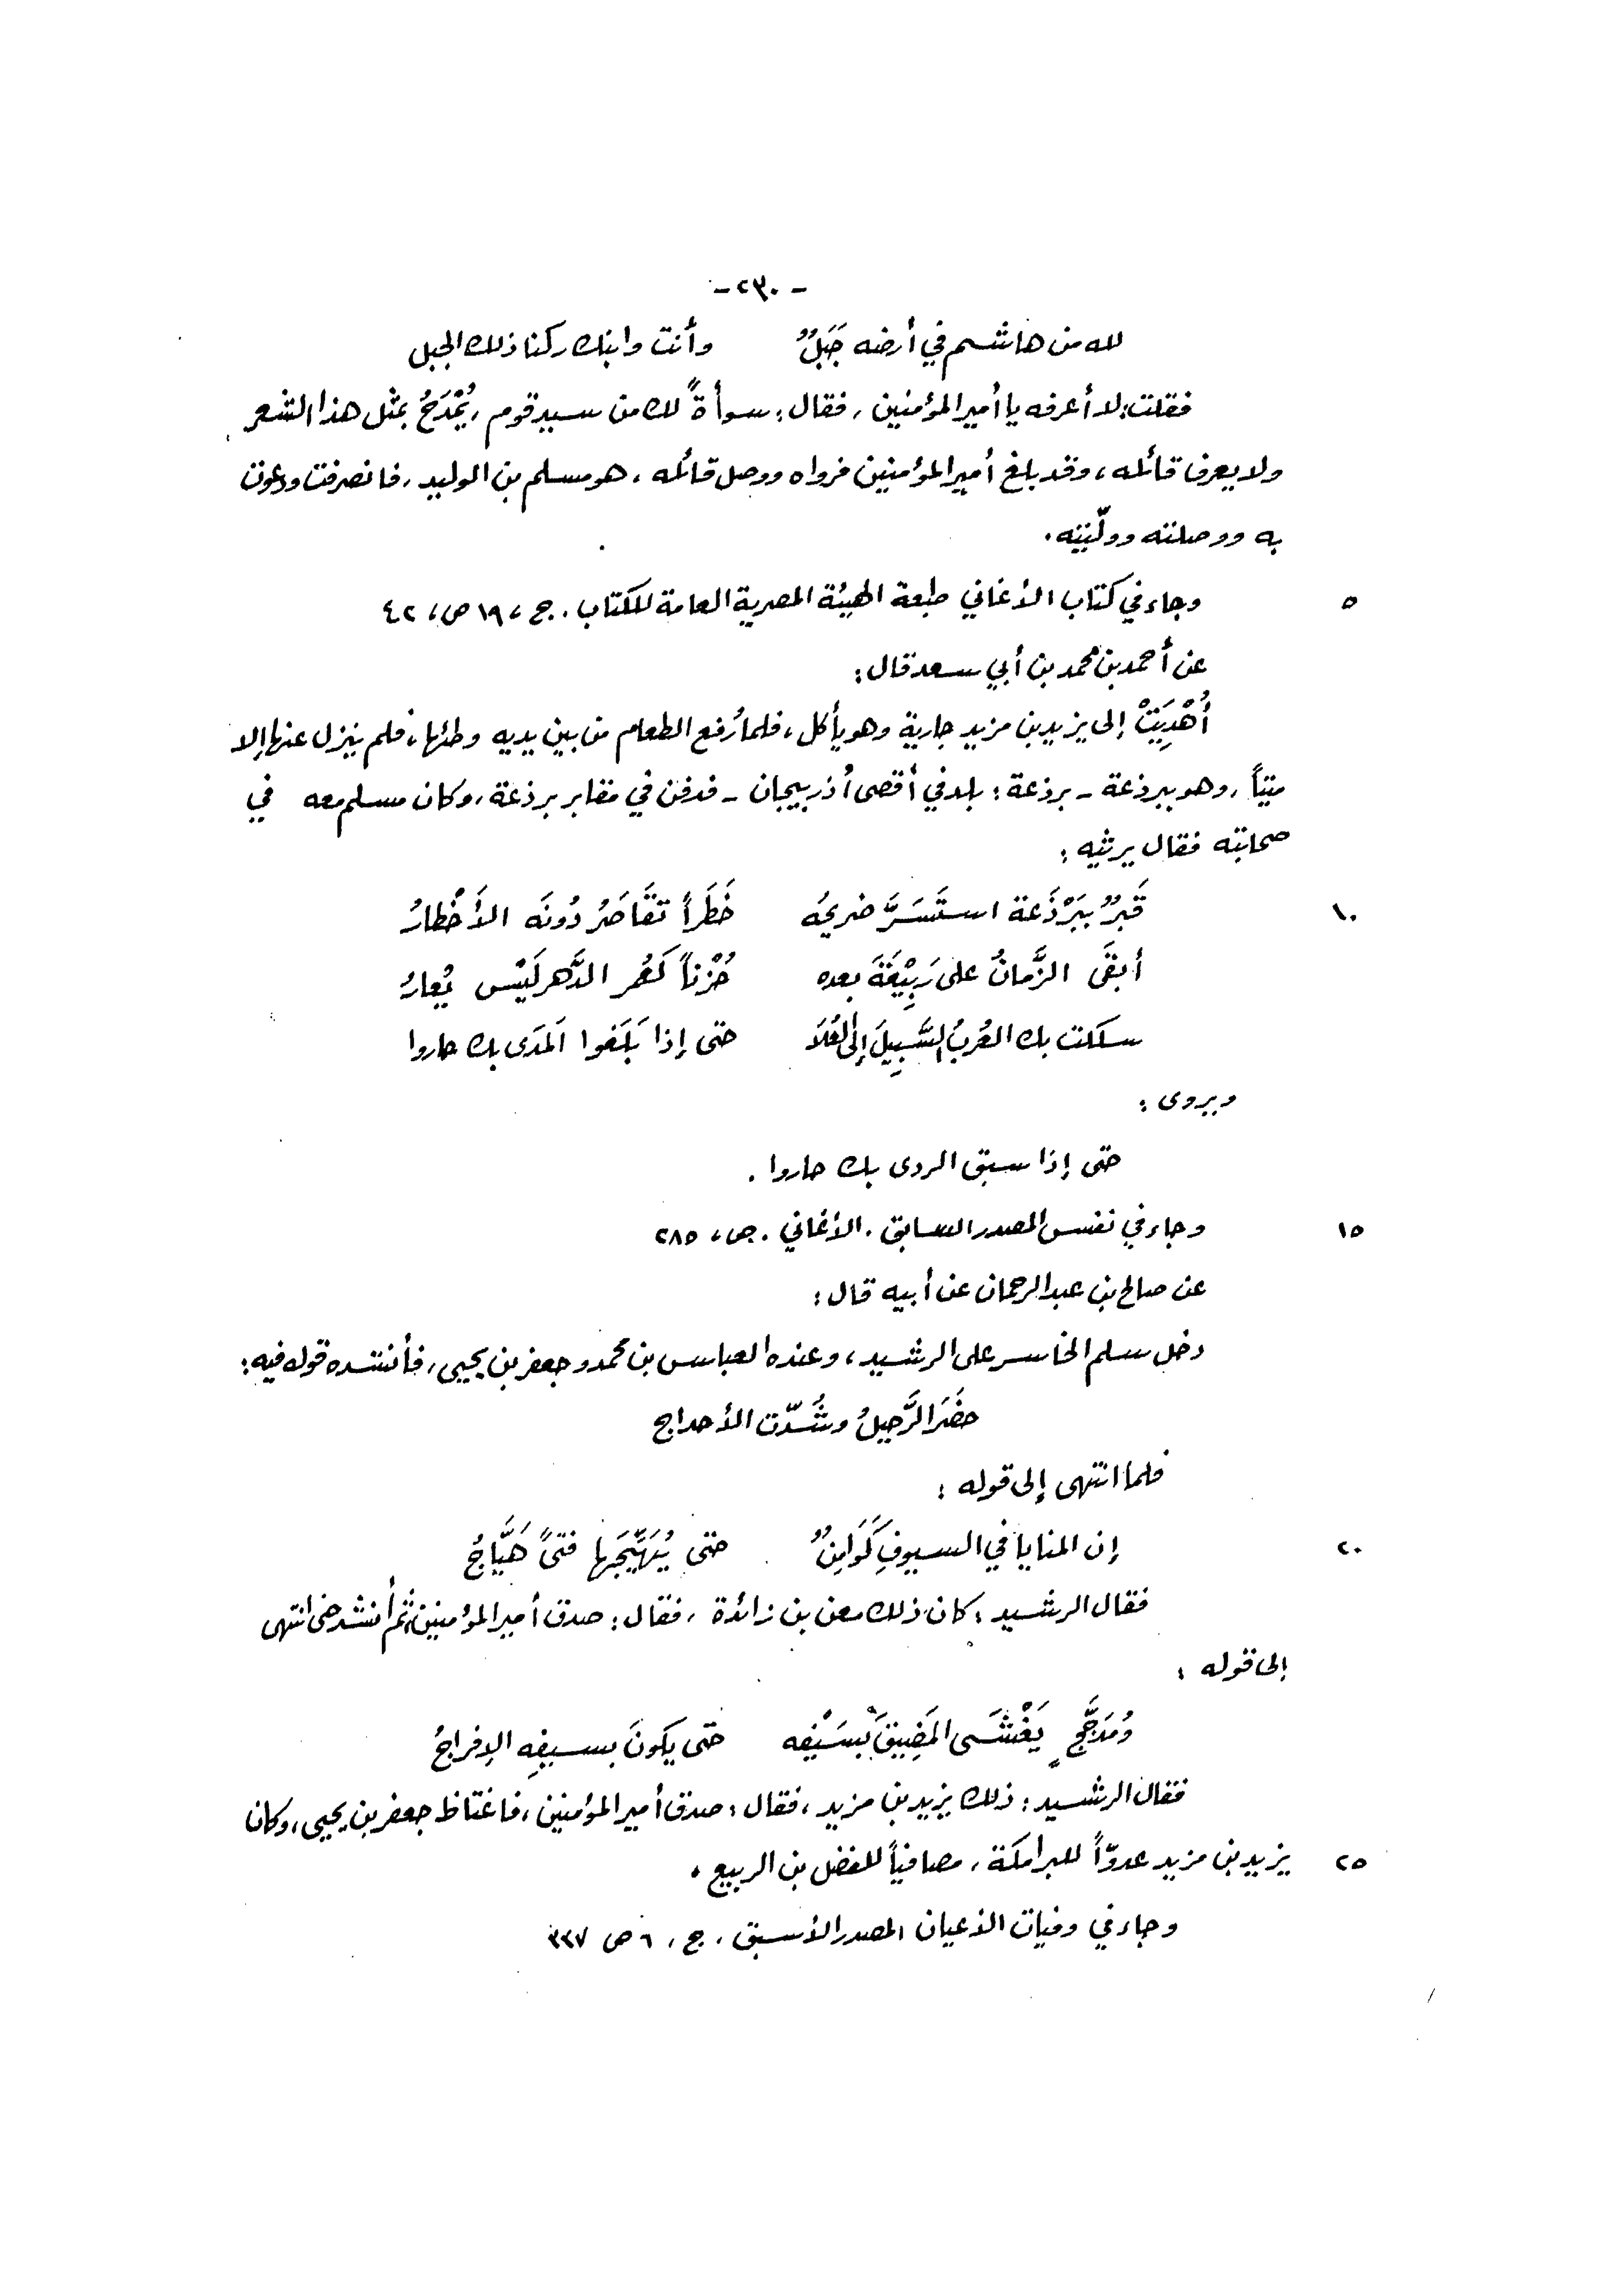 - ٢٣٠ -
لله من هاشم في أرضه جَبَلٌ وأنت وابنك ركنا ذلك الجبل
فقلت: لا أعرفه يا أمير المؤمنين، فقال: سوأةً لك من سيد قوم، يُمْدَحُ بمثل هذا الشعر
ولا يعرف قائله، وقد بلغ أمير المؤمنين فرواه ووصل قائله، هو مسلم بن الوليد، فانصرفت ودعوت
به ووصلته وولّيته.
٥ وجاء في كتاب الأغاني طبعة الهيئة المصرية العامة للكتاب. ج، ١٩ ص، ٤٢
عن أحمد بن محمد بن أبي سعد قال:
أُهْدِيَتْ إلى يزيد بن مزيد جارية وهو يأكل، فلما رُفع الطعام من بين يديه وطئها، فلم ينزل عنها إلا
ميتاً، وهو ببرذعة - برذعة: بلد في أقصى أُذربيجان - فدفن في مقابر برذعة، وكان مسلم معه في
صحابته فقال يرثيه:
١٠ قَبرٌ بِبَرْذَعة استَسَرَّ ضريحُه خَطَراً تَقَاصَرُ دُونَه الأَخْطارُ
أبقَى الزَّمانُ على رَبِيْعَةَ بعده حُزْناً كَعُمر الدَّهر لَيْس يُعارُ
سلكت بك العُربُ السَّبِيلَ إلى العُلَا حتى إذا بَلَغوا المَدَى بك حاروا
ويروى:
حتى إذا سبق الردى بك حاروا.
١٥ وجاء في نفس المصدر السابق. الأغاني. ص، ٢٨٥
عن صالح بن عبد الرحمان عن أبيه قال:
دخل سلم الخاسر على الرشيد، وعنده العباس بن محمد وجعفر بن يحيى، فأنشده قوله فيه:
حضَرَ الرَّحِيلُ وشُدّت الأحداج
فلما انتهى إلى قوله:
٢٠ إن المنايا في السيوفِ كَوَامِنٌ حتى يُهَيِّجَها فتىً هَيَّاجُ
فقال الرشيد: كان ذلك معن بن زائدة، فقال: صدق أمير المؤمنين، ثم أنشد حتى انتهى
إلى قوله:
ومُدَجَّجٍ يَغْشَى المَضِيقَ بسَيْفِه حتى يكونَ بسيفِه الإفراجُ
فقال الرشيد: ذلك يزيد بن مزيد، فقال: صدق أمير المؤمنين، فاغتاظ جعفر بن يحيى، وكان
٢٥ يزيد بن مزيد عدوّاً للبرامكة، مصافياً للفضل بن الربيع.
وجاء في وفيات الأعيان المصدر الأسبق، ج، ٦ ص ٣٣٧